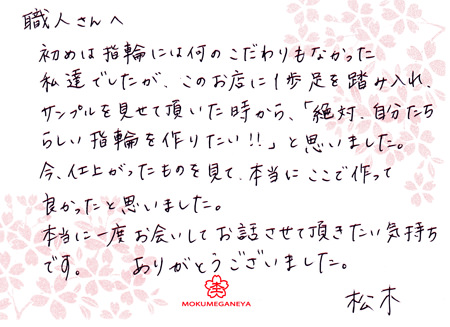 職人さんへ
初めは指輪には何のこだわりもなかった
私達でしたが、このお店に1歩足を踏み入れ、
サンプルを見せて頂いた時から、「絶対、自分たち
らしい指輪を作りたい!!」と思いました。
今、仕上がったものを見て、本当にここで作って
良かったと思いました。
本当に一度お会いしてお話させて頂きたい気持ち
です。 ありがとうございました。
MOKUMEGANEYA
松木